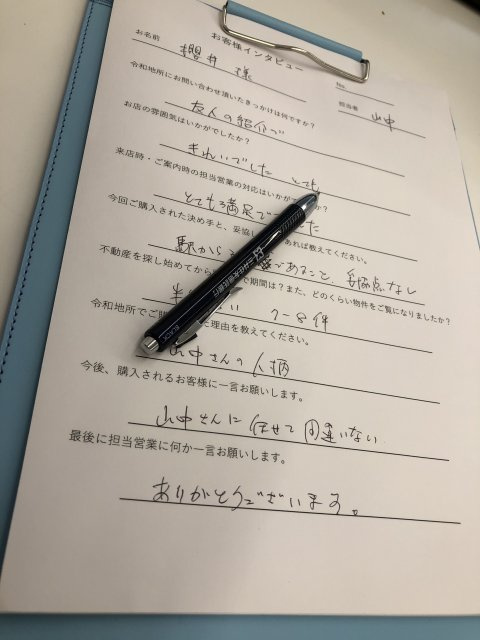 お客様インタビュー
お名前 櫻井 様
No.
担当者 山中
令和地所にお問い合わせ頂いたきっかけは何ですか？
友人の紹介で
お店の雰囲気はいかがでしたか？
きれいでした とても
来店時・ご案内時の担当営業の対応はいかがで か？
とても満足で した
今回ご購入された決め手と、妥協し あれば教えてください。
駅から であること、妥協点なし
不動産を探し始めてから で期間は？また、どのくらい物件をご覧になりましたか？
半 7~8件
令和地所でご購 た理由を教えてください。
山中さんの人柄
今後、購入されるお客様に一言お願いします。
山中さんに任せて間違いない
最後に担当営業に何か一言お願いします。
ありがとうございます。
BLACK